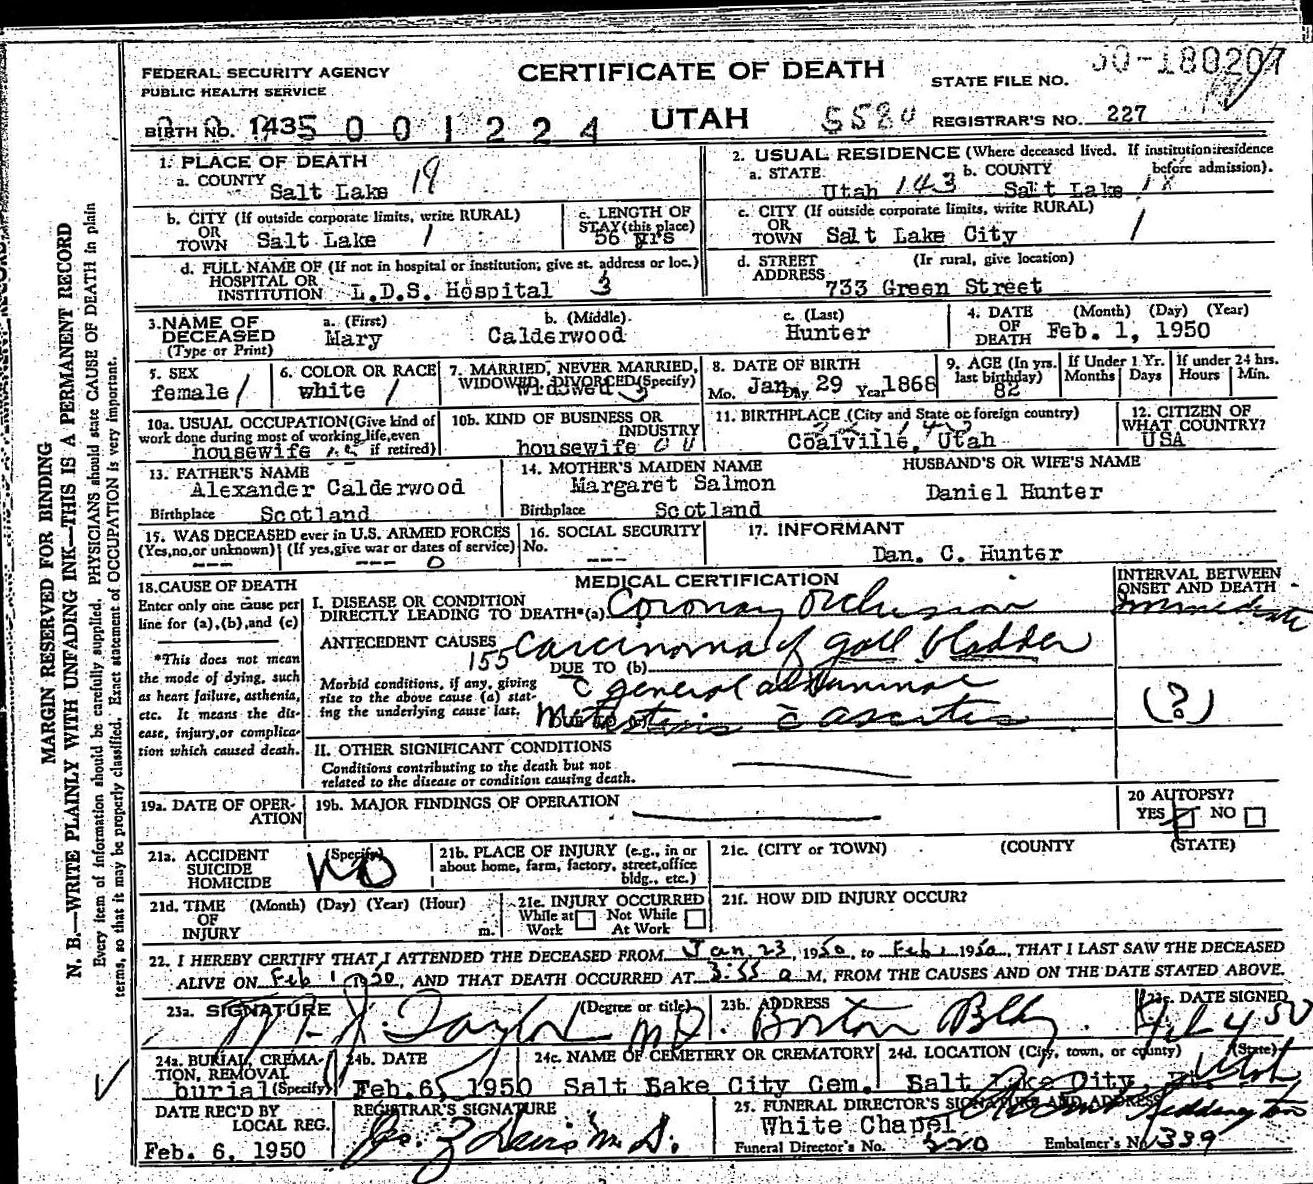 FEDERAL SECURITY AGENCY
PUBLIC HEALTH SERVICE
CERTIFICATE OF DEATH
UTAH
STATE FILE NO. 50-180207
BIRTH NO. 1435001224
5580
REGISTRAR'S NO. 227
1. PLACE OF DEATH
a. COUNTY Salt Lake 19
2. USUAL RESIDENCE (Where deceased lived. If institution: residence before admission).
a. STATE Utah 143 b. COUNTY Salt Lake 18
b. CITY (If outside corporate limits, write RURAL)
OR
TOWN Salt Lake 1
c. LENGTH OF
STAY (this place)
56 yrs
c. CITY (If outside corporate limits, write RURAL)
OR
TOWN Salt Lake City 1
d. FULL NAME OF (If not in hospital or institution, give st. address or loc.)
HOSPITAL OR
INSTITUTION L.D.S. Hospital 3
d. STREET (If rural, give location)
ADDRESS 733 Green Street
3. NAME OF DECEASED
(Type or Print)
a. (First) Mary
b. (Middle) Calderwood
c. (Last) Hunter
4. DATE OF DEATH (Month) (Day) (Year)
Feb. 1, 1950
5. SEX
female 1
6. COLOR OR RACE
white 1
7. MARRIED, NEVER MARRIED,
WIDOWED, DIVORCED (Specify)
Widowed 3
8. DATE OF BIRTH
Mo. Jan Day 29 Year 1868
9. AGE (In yrs. last birthday)
82
If Under 1 Yr.
Months Days
If under 24 hrs.
Hours Min.
10a. USUAL OCCUPATION (Give kind of
work done during most of working life, even
if retired)
housewife
10b. KIND OF BUSINESS OR
INDUSTRY
housewife
11. BIRTHPLACE (City and State or foreign country)
Coalville, Utah
12. CITIZEN OF
WHAT COUNTRY?
USA
13. FATHER'S NAME
Alexander Calderwood
Birthplace Scotland
14. MOTHER'S MAIDEN NAME
Margaret Salmon
Birthplace Scotland
HUSBAND'S OR WIFE'S NAME
Daniel Hunter
15. WAS DECEASED ever in U.S. ARMED FORCES
(Yes, no, or unknown) (If yes, give war or dates of service)
--- --- 0
16. SOCIAL SECURITY
No. ---
17. INFORMANT
Dan. C. Hunter
18. CAUSE OF DEATH
Enter only one cause per
line for (a), (b), and (c)
*This does not mean
the mode of dying, such
as heart failure, asthenia,
etc. It means the dis-
ease, injury, or complica-
tion which caused death.
MEDICAL CERTIFICATION
INTERVAL BETWEEN
ONSET AND DEATH
I. DISEASE OR CONDITION
DIRECTLY LEADING TO DEATH*(a) Coronary Occlusion
Immediate
ANTECEDENT CAUSES Carcinoma of gall bladder
155 DUE TO (b)
Morbid conditions, if any, giving
rise to the above cause (a) stat-
ing the underlying cause last.
c̄ general abdominal
Metastasis c̄ ascites
(?)
II. OTHER SIGNIFICANT CONDITIONS
Conditions contributing to the death but not
related to the disease or condition causing death.
19a. DATE OF OPER-
ATION
19b. MAJOR FINDINGS OF OPERATION
20 AUTOPSY?
YES NO
21a. ACCIDENT
SUICIDE
HOMICIDE
(Specify)
NO
21b. PLACE OF INJURY (e.g., in or
about home, farm, factory, street, office
bldg., etc.)
21c. (CITY or TOWN) (COUNTY (STATE)
21d. TIME OF INJURY (Month) (Day) (Year) (Hour) m.
21e. INJURY OCCURRED
While at Work Not While At Work
21f. HOW DID INJURY OCCUR?
22. I HEREBY CERTIFY THAT I ATTENDED THE DECEASED FROM Jan 23, 1950, to Feb 1 1950, THAT I LAST SAW THE DECEASED
ALIVE ON Feb 1 1950, AND THAT DEATH OCCURRED AT 3:55 a M, FROM THE CAUSES AND ON THE DATE STATED ABOVE.
23a. SIGNATURE (Degree or title)
Taylor M.D.
23b. ADDRESS
Boston Bldg.
23c. DATE SIGNED
Feb 4 50
24a. BURIAL, CREMA-
TION, REMOVAL
burial (Specify)
24b. DATE
Feb. 6, 1950
24c. NAME OF CEMETERY OR CREMATORY
Salt Lake City Cem.
24d. LOCATION (City, town, or county) (State)
Salt Lake City, Utah
DATE REC'D BY
LOCAL REG.
Feb. 6, 1950
REGISTRAR'S SIGNATURE
M.D.
25. FUNERAL DIRECTOR'S SIGNATURE AND ADDRESS
White Chapel
Funeral Director's No. 220 Embalmer's No. 339
MARGIN RESERVED FOR BINDING
N. B.—WRITE PLAINLY WITH UNFADING INK—THIS IS A PERMANENT RECORD
Every item of information should be carefully supplied. PHYSICIANS should state CAUSE OF DEATH in plain
terms, so that it may be properly classified. Exact statement of OCCUPATION is very important.